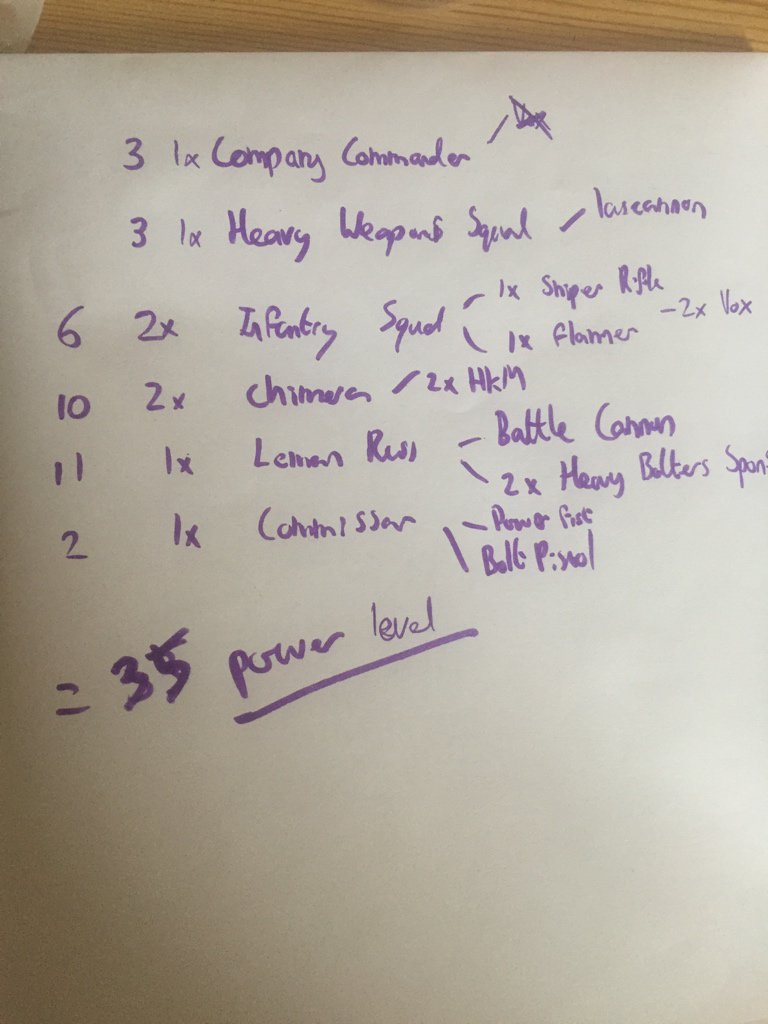 3 1x Company Commander
3 1x Heavy Weapons Squad lascannon
6 2x Infantry Squad 1x Sniper Rifle
1x flamer - 2x Vox
10 2x Chimera 2x HKM
11 1x Leman Russ Battle Cannon
2x Heavy Bolters Spons
2 1x Commissar Power fist
Bolt Pistol
= 35 power level